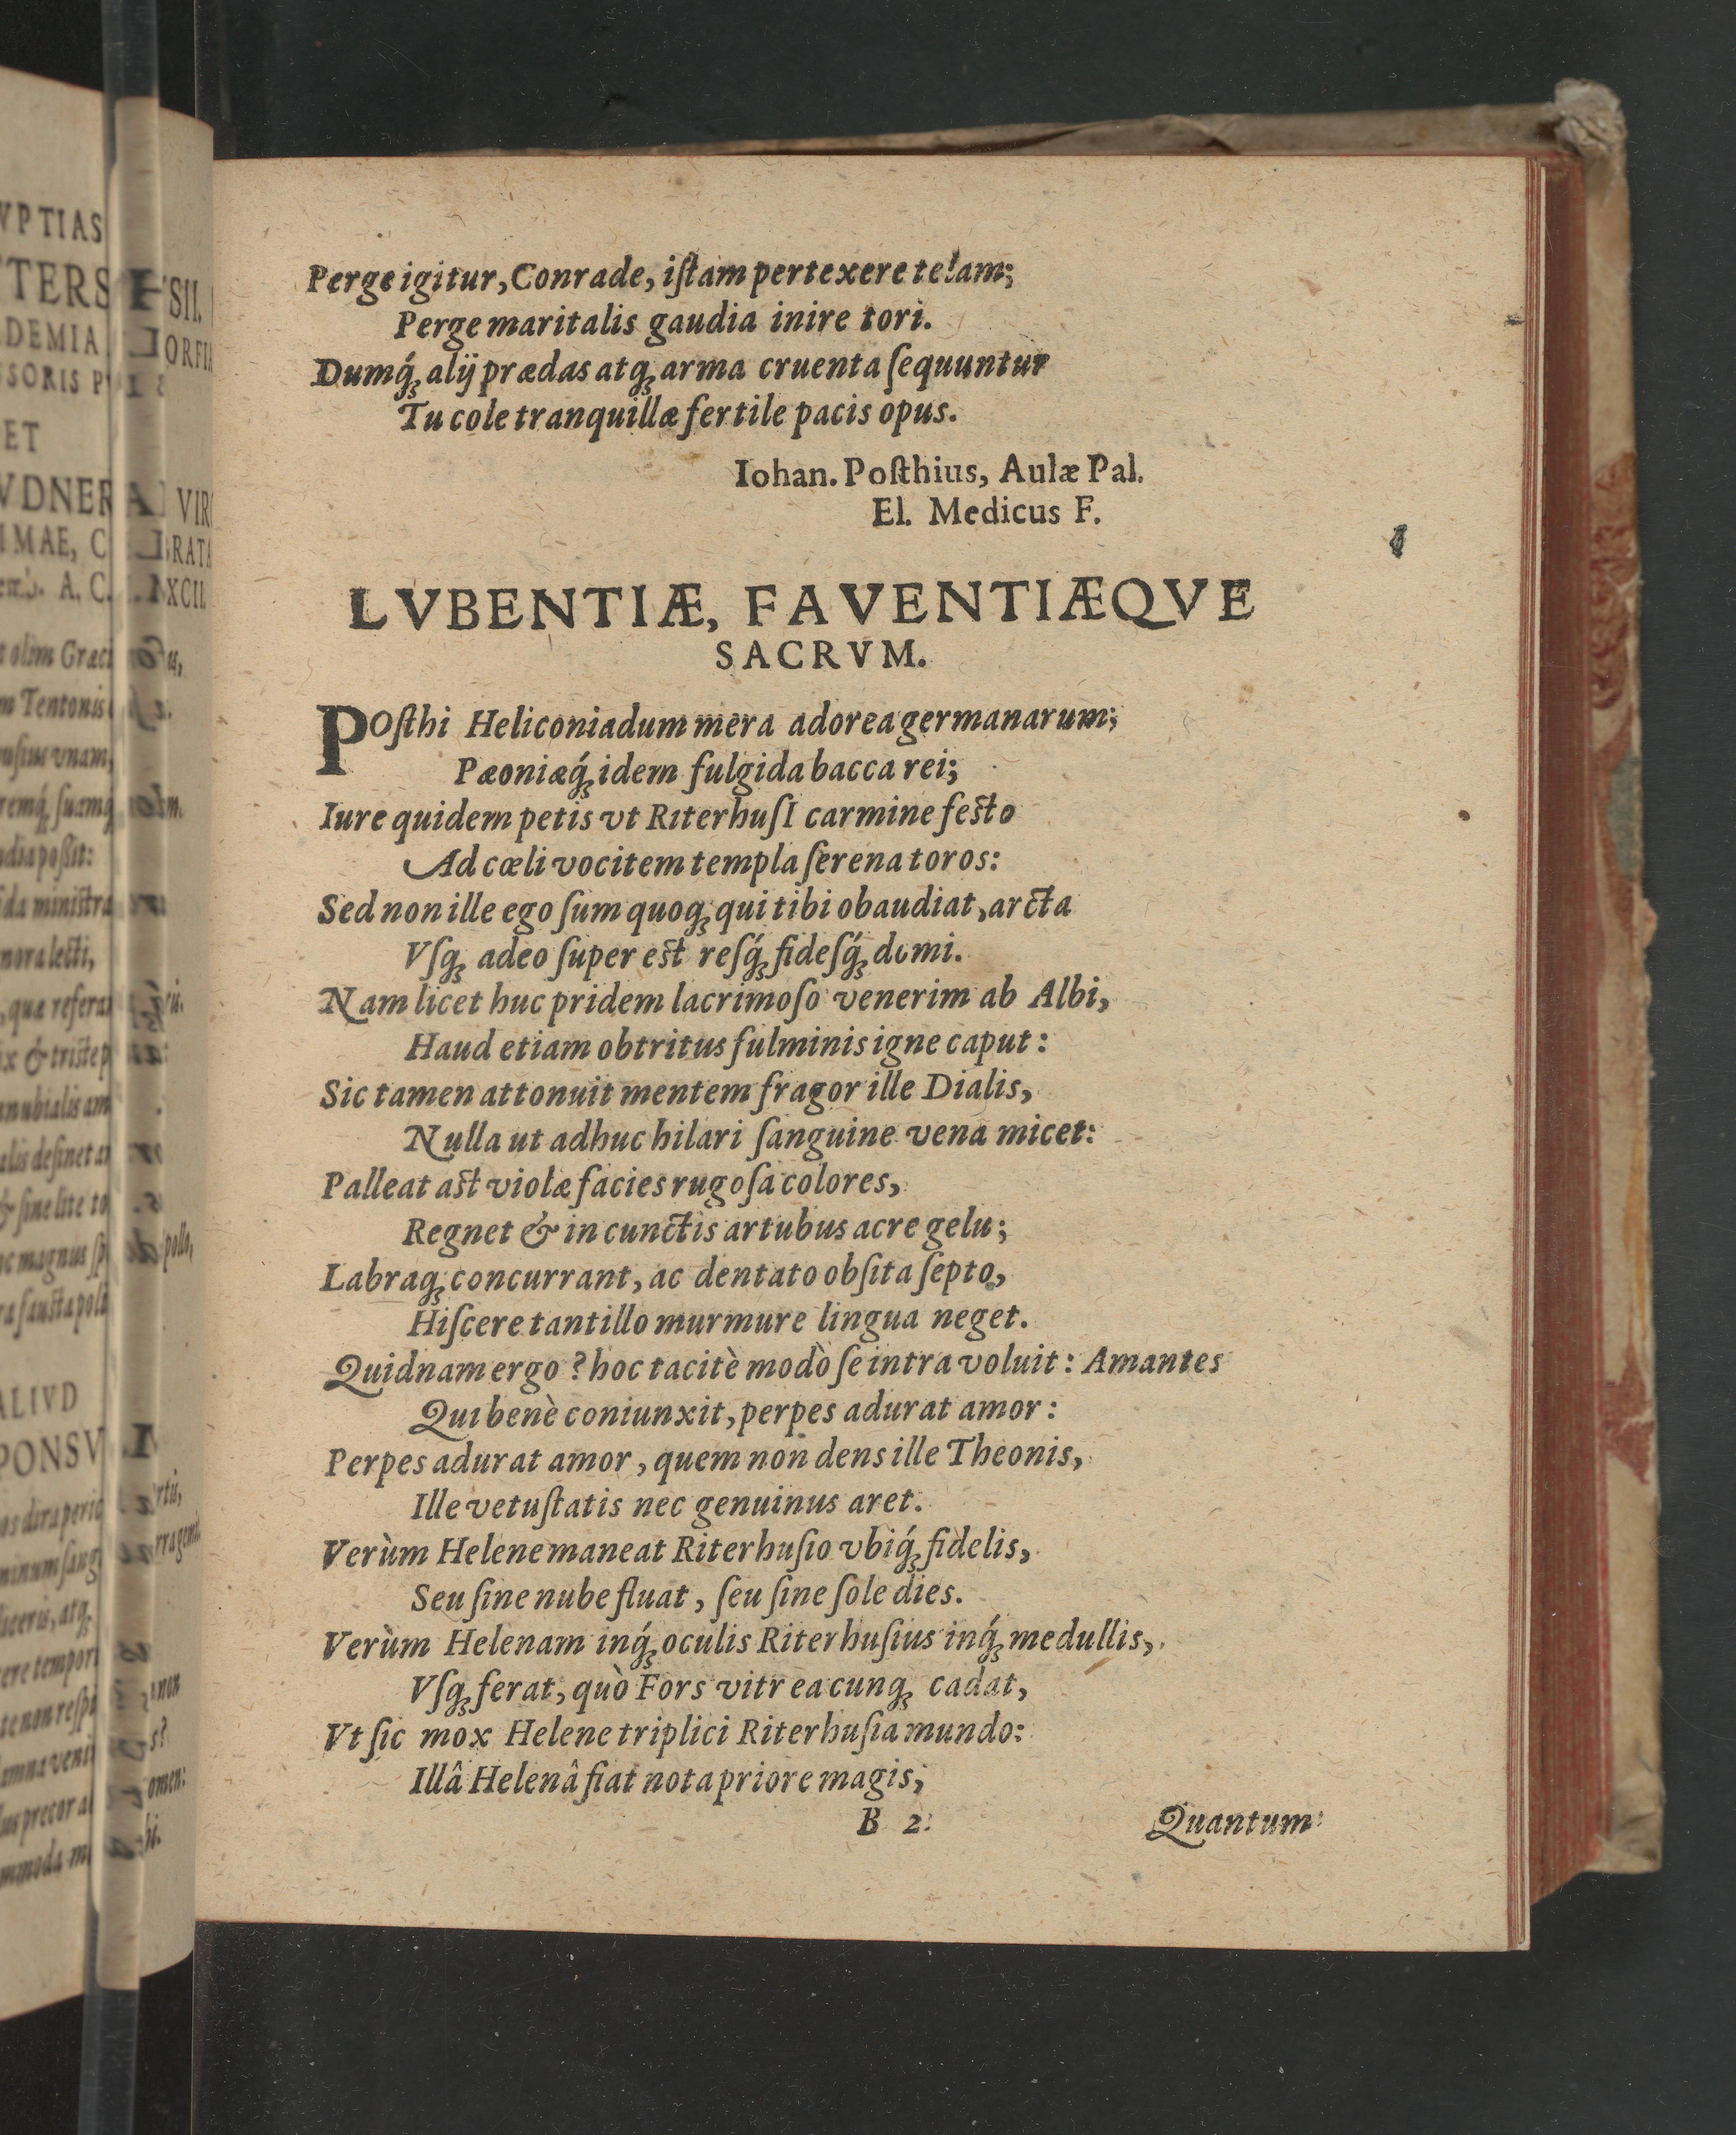 Perge igitur, Conrade, iſtam pertexere telam;
Perge maritalis gaudia inire tori.
Dumq́ꝫ alij prædas atqꝫ arma cruenta ſequuntur
Tu cole tranquillæ fertile pacis opus.
Iohan. Poſthius, Aulæ Pal.
El. Medicus F.
LVBENTIÆ, FAVENTIÆQVE
SACRVM.
POſthi Heliconiadum mera adorea germanarum;
Pæoniæq́ꝫ idem fulgida bacca rei;
Iure quidem petis vt RıterhuſI carmine feſto
Ad cœli vocitem templa ſerena toros:
Sed non ille ego ſum quoqꝫ qui tibi obaudiat, arcta
Vſqꝫ adeo ſuper eſt reſq́ꝫ fideſq́ꝫ domi.
Nam licet huc pridem lacrimoſo venerim ab Albi,
Haud etiam obtritus fulminis igne caput:
Sic tamen attonuit mentem fragor ille Dialis,
Nulla ut adhuc hilari ſanguine vena micet:
Palleat aſt violæ facies rugoſa colores,
Regnet & in cunctis artubus acre gelu;
Labraqꝫ concurrant, ac dentato obſita ſepto,
Hiſcere tantillo murmure lingua neget.
Quidnam ergo? hoc tacitè modò ſe intra voluit: Amantes
Qui benè coniunxit, perpes adurat amor:
Perpes adurat amor, quem non dens ille Theonis,
Ille vetuſtatis nec genuinus aret.
Verùm Helene maneat Riterhuſio vbiq́ꝫ fidelis,
Seu ſine nube fluat, ſeu ſine ſole dies.
Verùm Helenam inq́ꝫ oculis Riterhuſius inq́ꝫ medullis,
Vſqꝫ ferat, quò Fors vitrea cunqꝫ cadat,
Vt ſic mox Helene triplici Riterhuſia mundo:
Illâ Helenâ fiat nota priore magis;
B 2.
Quantum